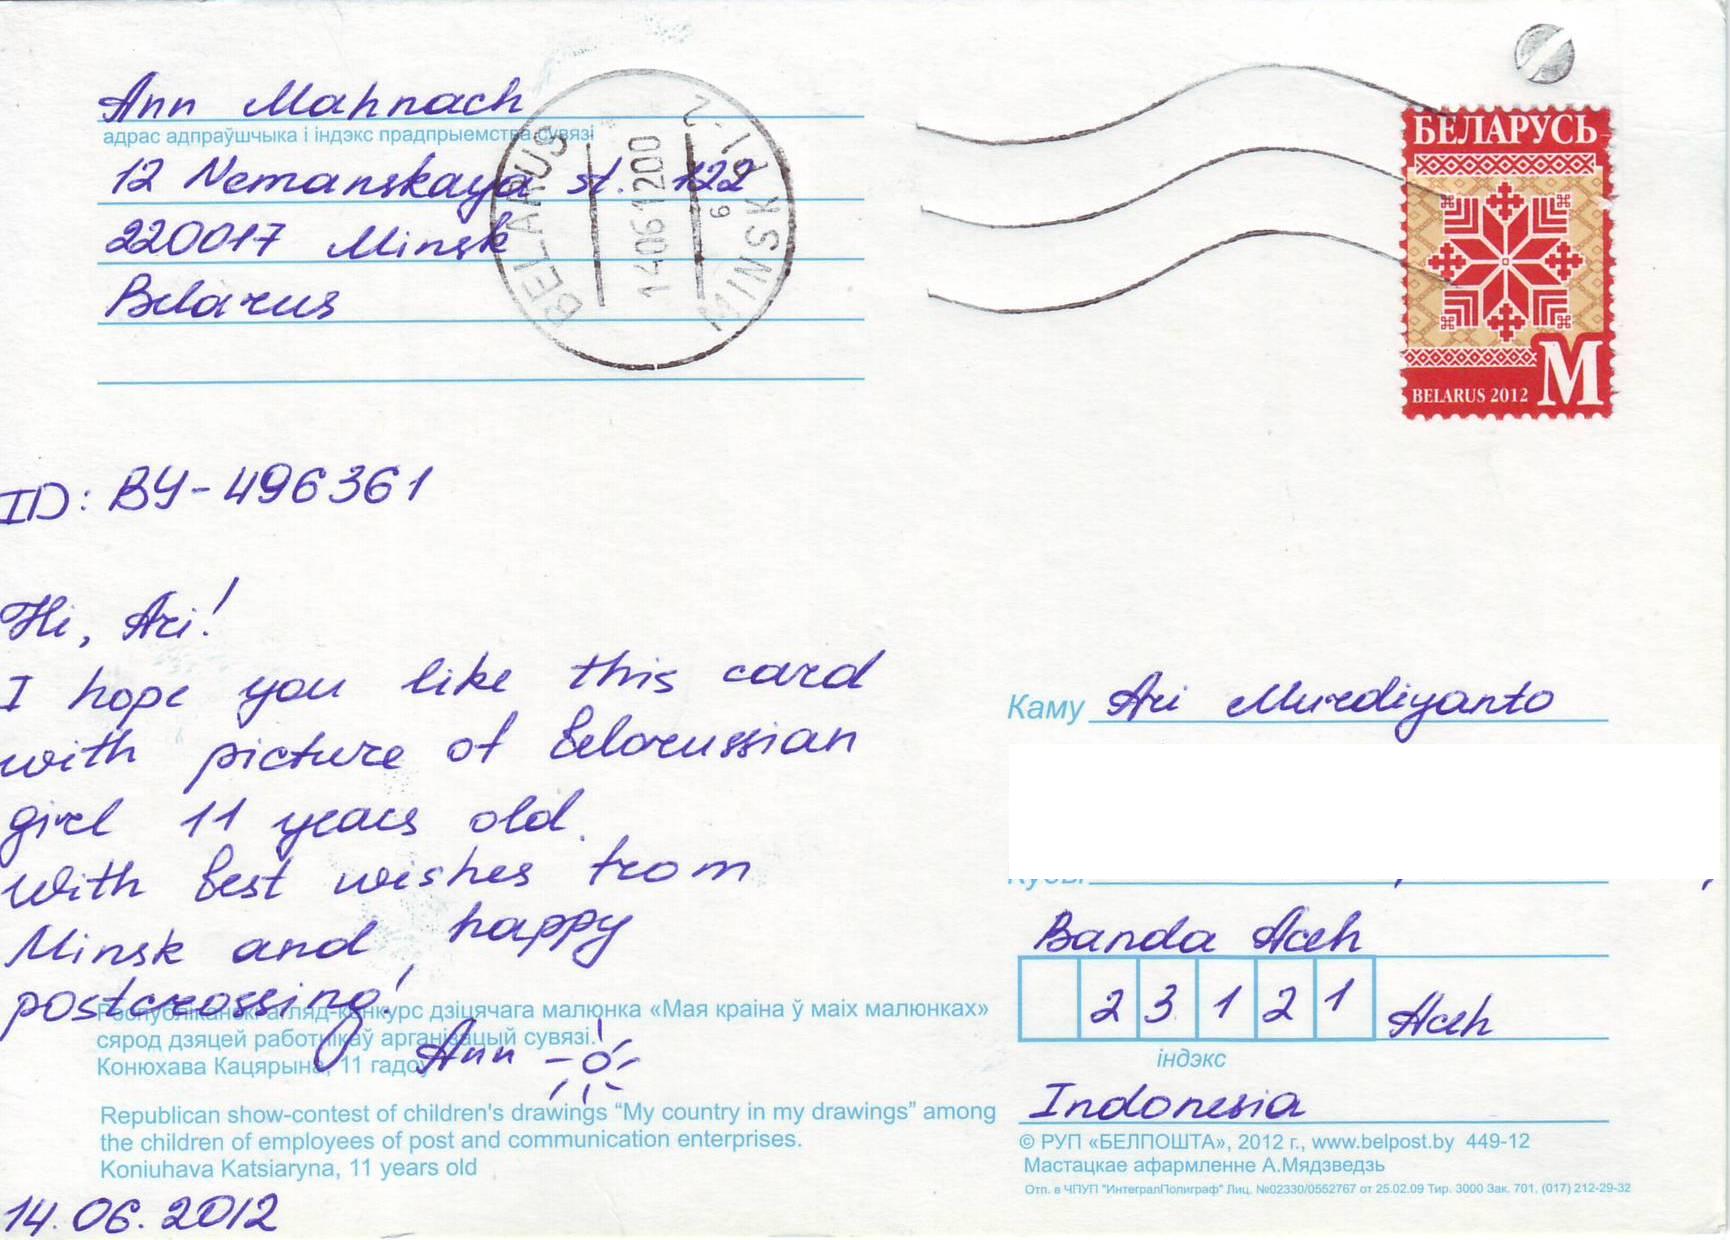 Ann Mahnach
адрас адпраўшчыка і індэкс прадпрыемства сувязі
12 Nemanskaya st. 122
220017 Minsk
Belarus
BELARUS
14061200
MINSK
БЕЛАРУСЬ
BELARUS 2012 M
ID: BY-496361
Hi, Ari!
I hope you like this card
with picture of belorussian
girl 11 years old.
With best wishes from
Minsk and happy
postcrossing!
Ann
Рэспубліканскі агляд-конкурс дзіцячага малюнка «Мая краіна ў маіх малюнках»
сярод дзяцей работнікаў арганізацый сувязі.
Конюхава Кацярына, 11 гадоў
Republican show-contest of children's drawings “My country in my drawings” among
the children of employees of post and communication enterprises.
Koniuhava Katsiaryna, 11 years old
14.06.2012
Каму Ari Murdiyanto
Banda Aceh
23121 Aceh
індэкс
Indonesia
© РУП «БЕЛПОШТА», 2012 г., www.belpost.by 449-12
Мастацкае афармленне А.Мядзведзь
Отп. в ЧПУП "ИнтегралПолиграф" Лиц. №02330/0552767 от 25.02.09 Тир. 3000 Зак. 701, (017) 212-29-32